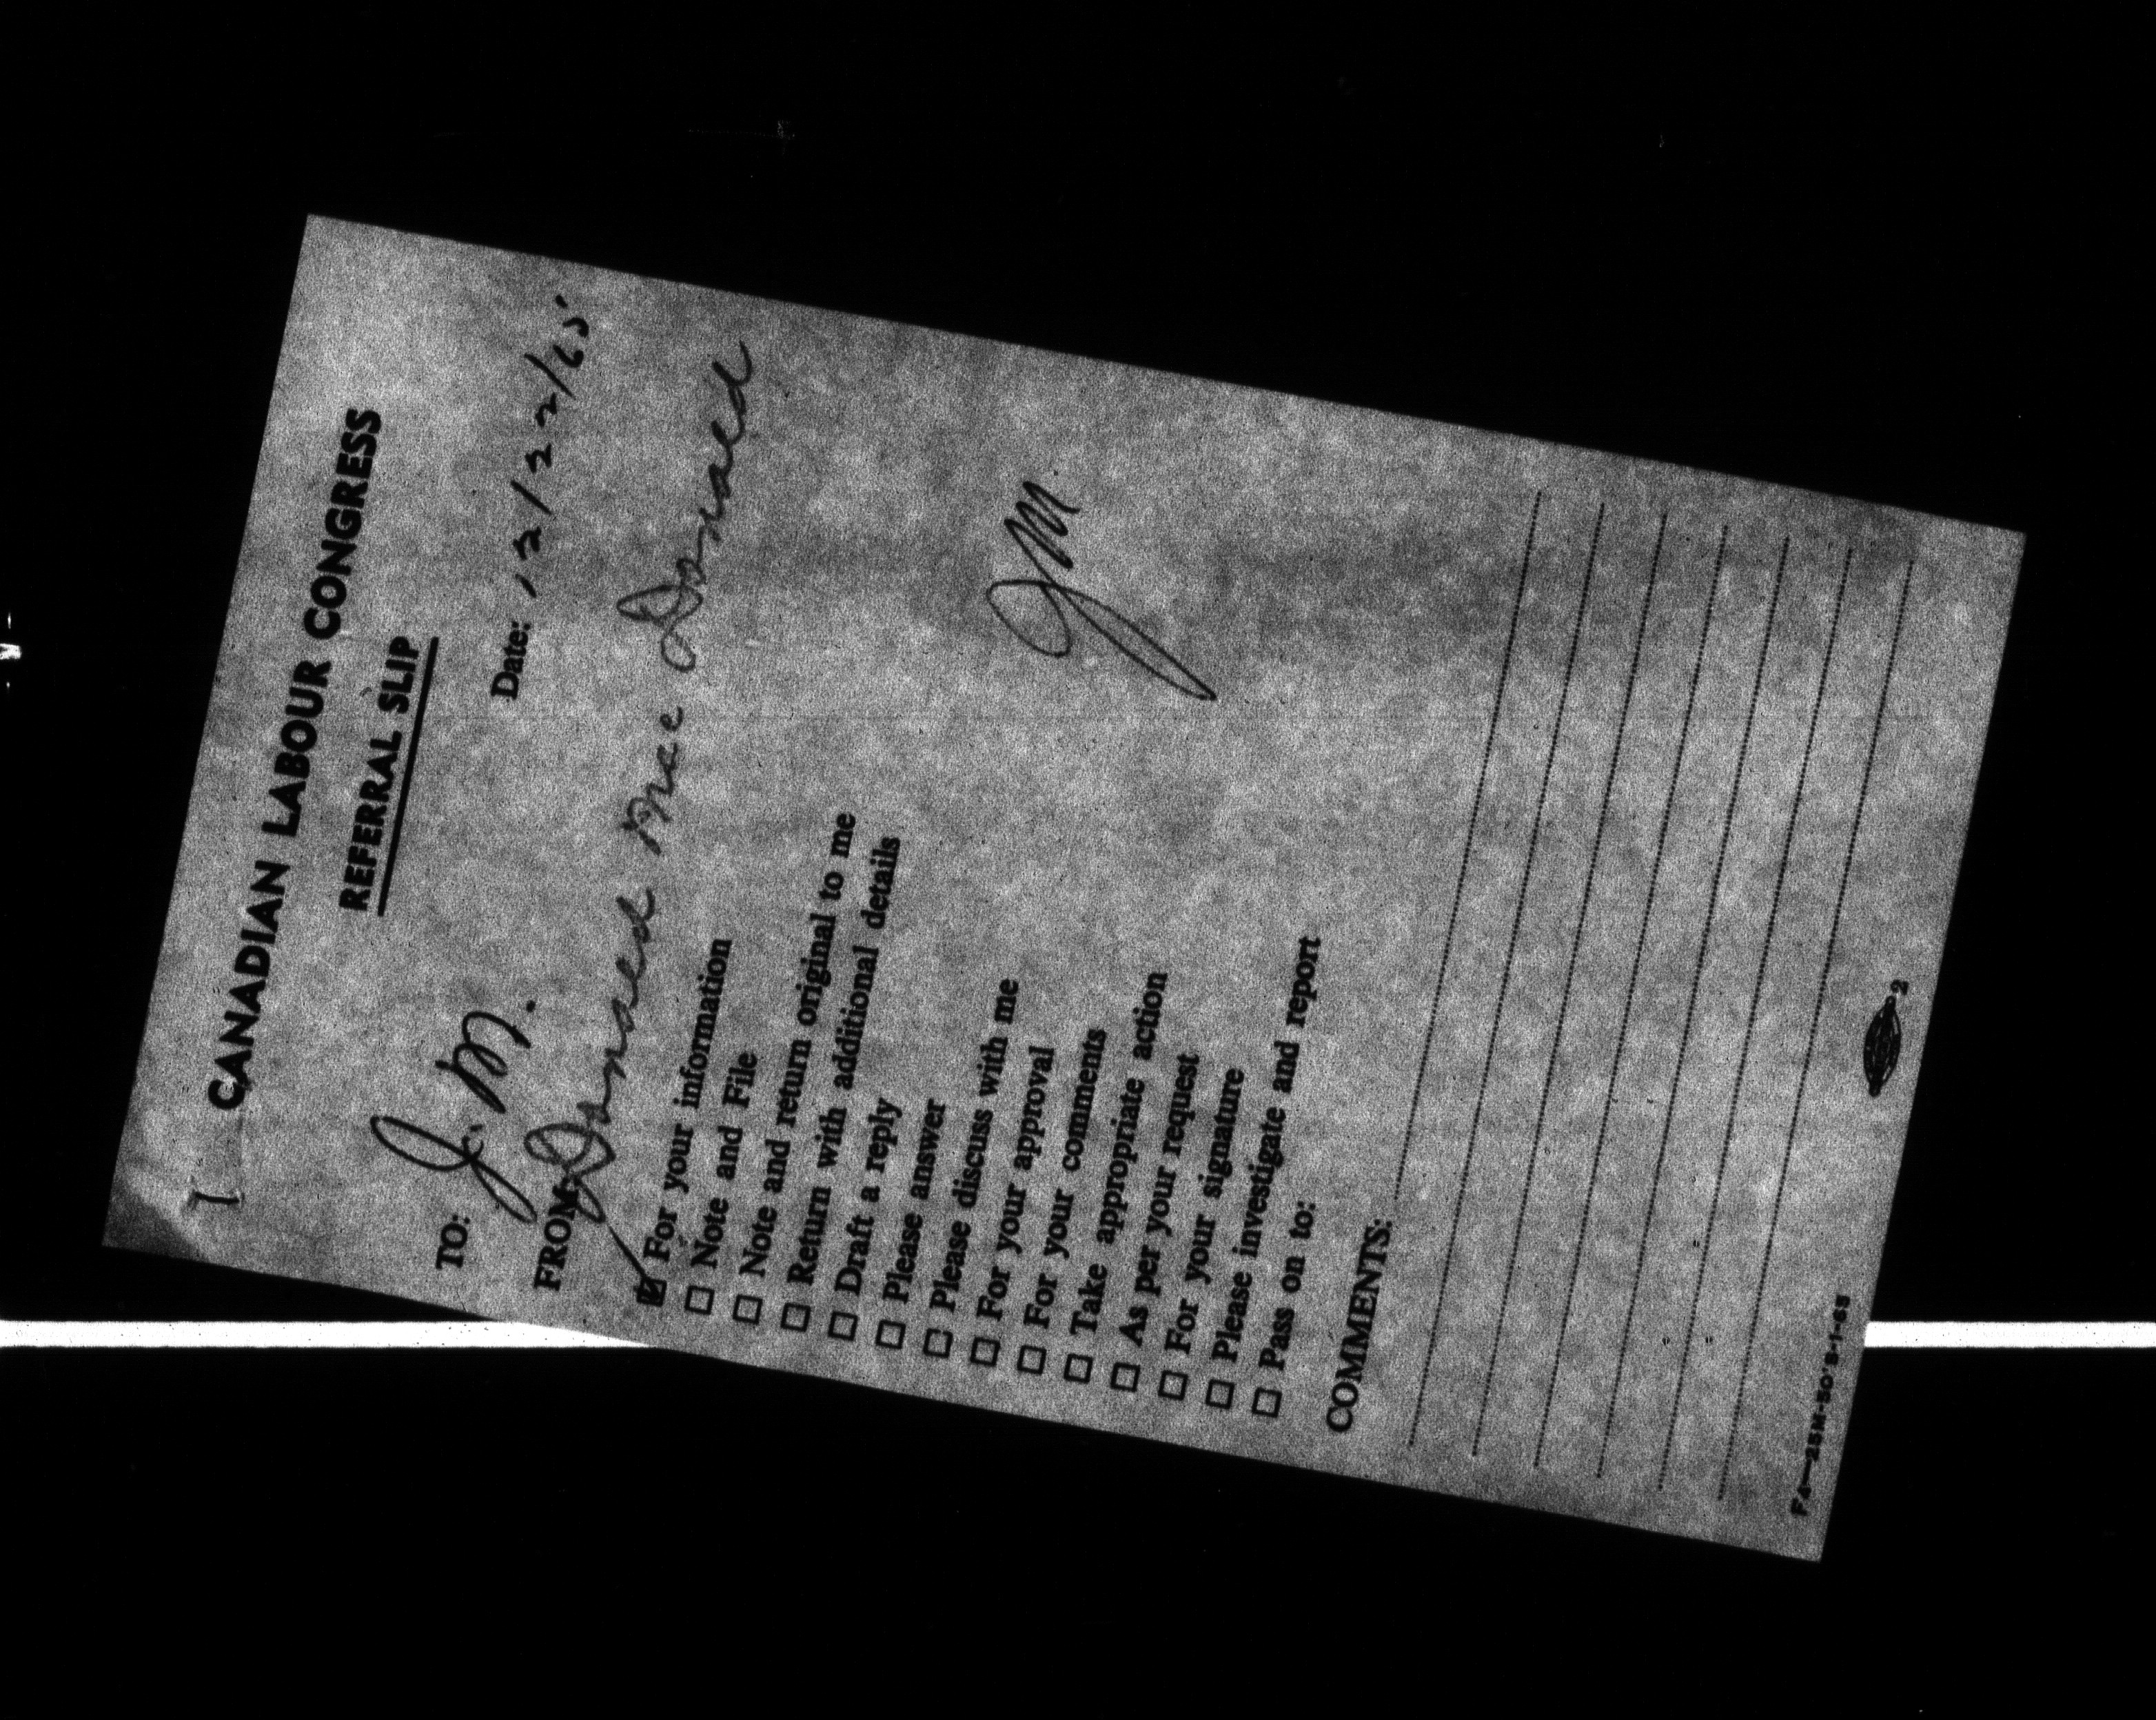 CANADIAN LABOUR CONGRESS
REFERRAL SLIP
Date: 12/22/65
TO: J. M.
FROM: Donald Mac Donald
☑ For your information
☐ Note and File
☐ Note and return original to me
☐ Return with additional details
☐ Draft a reply
☐ Please answer
☐ Please discuss with me
☐ For your approval
☐ For your comments
☐ Take appropriate action
☐ As per your request
☐ For your signature
☐ Please investigate and report
☐ Pass on to:
JM.
COMMENTS:
F4—25M-50's-1-65
2